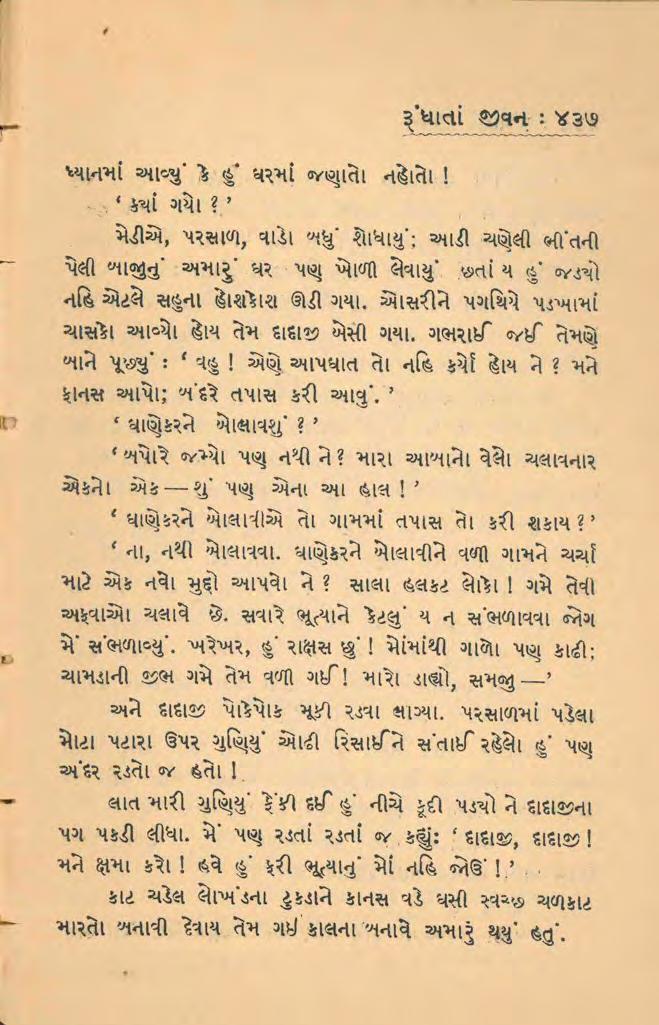 રૂંધાતાં જીવન : ૪૩૭
ધ્યાનમાં આવ્યું કે હું ઘરમાં જણાતો નહોતો !
‘ ક્યાં ગયો ? ’
મેડીએ, પરસાળ, વાડો બધું શોધાયું; આડી ચણેલી ભીંતની
પેલી બાજીનું અમારું ઘર પણ ખોળી લેવાયું છતાં ય હું જડ્યો
નહિ એટલે સહુના હોશકોશ ઊડી ગયા. ઓસરીને પગથિયે પડખામાં
ચાસકો આવ્યો હોય તેમ દાદાજી બેસી ગયા. ગભરાઈ જઈ તેમણે
બાને પૂછ્યું : ‘ વહુ ! એણે આપઘાત તો નહિ કર્યો હોય ને ? મને
ફાનસ આપો; બંદરે તપાસ કરી આવું. ’
‘ ઘાણેકરને બોલાવશું ? ’
‘ બપોરે જમ્યો પણ નથી ને ? મારા આબાનો વેલો ચલાવનાર
એકનો એક — શું પણ એના આ હાલ ! ’
‘ ઘાણેકરને બોલાવીએ તો ગામમાં તપાસ તો કરી શકાય ? ’
‘ ના, નથી બોલાવવા. ઘાણેકરને બોલાવીને વળી ગામને ચર્ચા
માટે એક નવો મુદ્દો આપવો ને ? સાલા હલકટ લોકો ! ગમે તેવી
અફવાઓ ચલાવે છે. સવારે ભૂત્યાને કેટલું ય ન સંભળાવવા જોગ
મેં સંભળાવ્યું. ખરેખર, હું રાક્ષસ છું ! મોંમાંથી ગાળો પણ કાઢી;
ચામડાની જીભ ગમે તેમ વળી ગઈ ! મારો ડાહ્યો, સમજી —’
અને દાદાજી પોકેપોક મૂકી રડવા લાગ્યા. પરસાળમાં પડેલા
મોટા પટારા ઉપર ગુણિયું ઓઢી રિસાઈને સંતાઈ રહેલો હું પણ
અંદર રડતો જ હતો !
લાત મારી ગુણિયું ફેંકી દઈ હું નીચે કૂદી પડ્યો ને દાદાજીના
પગ પકડી લીધા. મેં પણ રડતાં રડતાં જ કહ્યુંઃ ‘ દાદાજી, દાદાજી !
મને ક્ષમા કરો ! હવે હું ફરી ભૂત્યાનું મોં નહિ જોઉં ! ’
કાટ ચડેલ લોખંડના ટુકડાને કાનસ વડે ઘસી સ્વચ્છ ચળકાટ
મારતો બનાવી દેવાય તેમ ગઈ કાલના બનાવે અમારું થયું હતું.